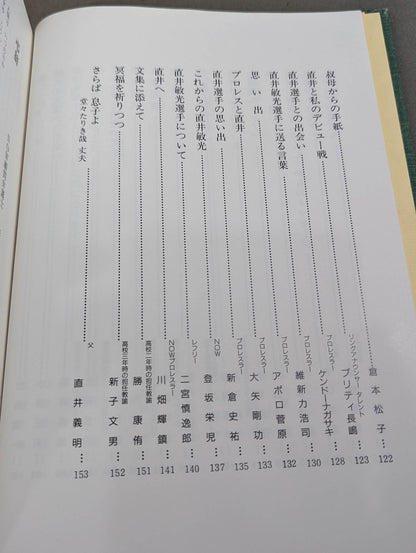 叔母からの手紙 倉本松子 122
直井と私のデビュー戦 リングアナウンサー・タレント プリティ長嶋 123
直井選手との出会い プロレスラー ケンドーナガサキ 128
直井敏光選手に送る言葉 プロレスラー 維新力浩司 130
思い出 プロレスラー アポロ菅原 132
プロレスと直井 プロレスラー 大矢剛功 133
直井選手の思い出 プロレスラー 新倉史祐 135
これからの直井敏光 NOW 登坂栄児 137
直井敏光選手について レフリー 二宮慎逸郎 140
直井へ NOWプロレスラー 川畑輝鎮 141
文集に添えて 高校二年時の担任教諭 勝康侑 151
冥福を祈りつつ 高校三年時の担任教諭 新子文男 152
さらば 息子よ 父 直井義明 153
堂々たりき哉 丈夫